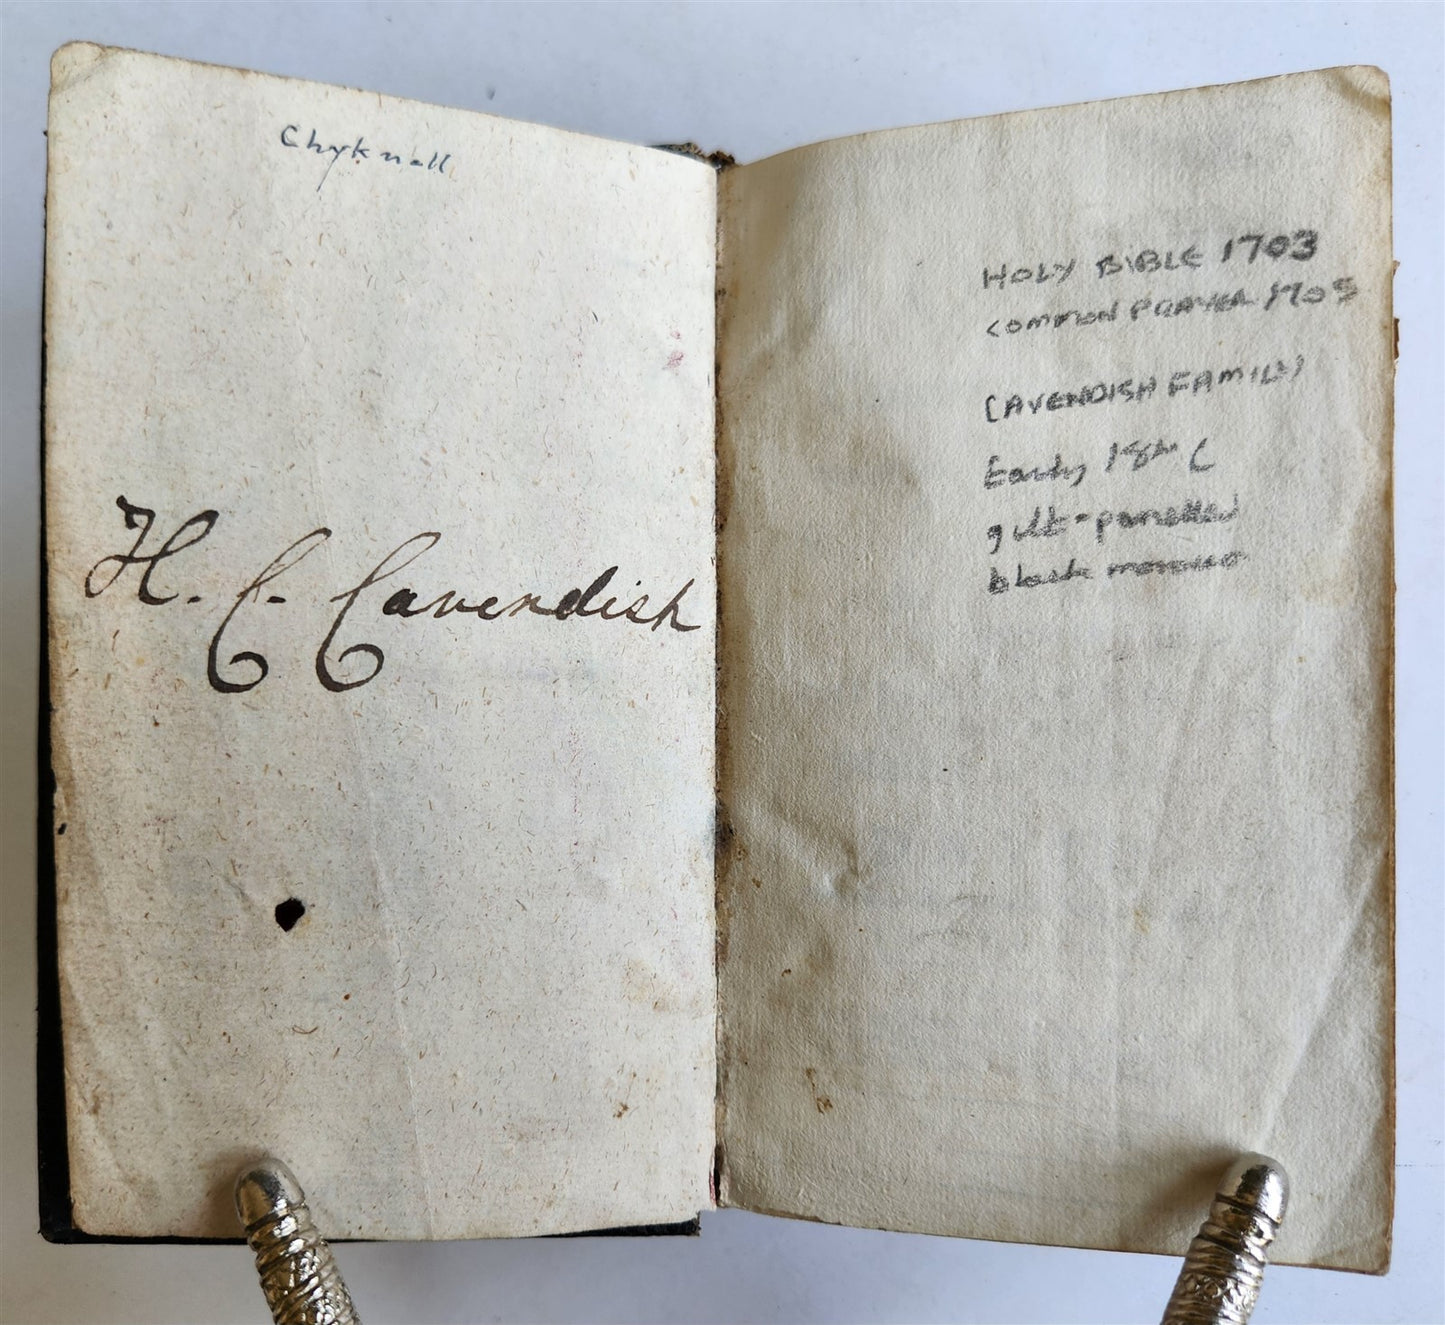 Chyknell
H. C. Cavendish
HOLY BIBLE 1703
COMMON PRAYER 1705
CAVENDISH FAMILY
Early 18th C
gilt-panelled
black morocco